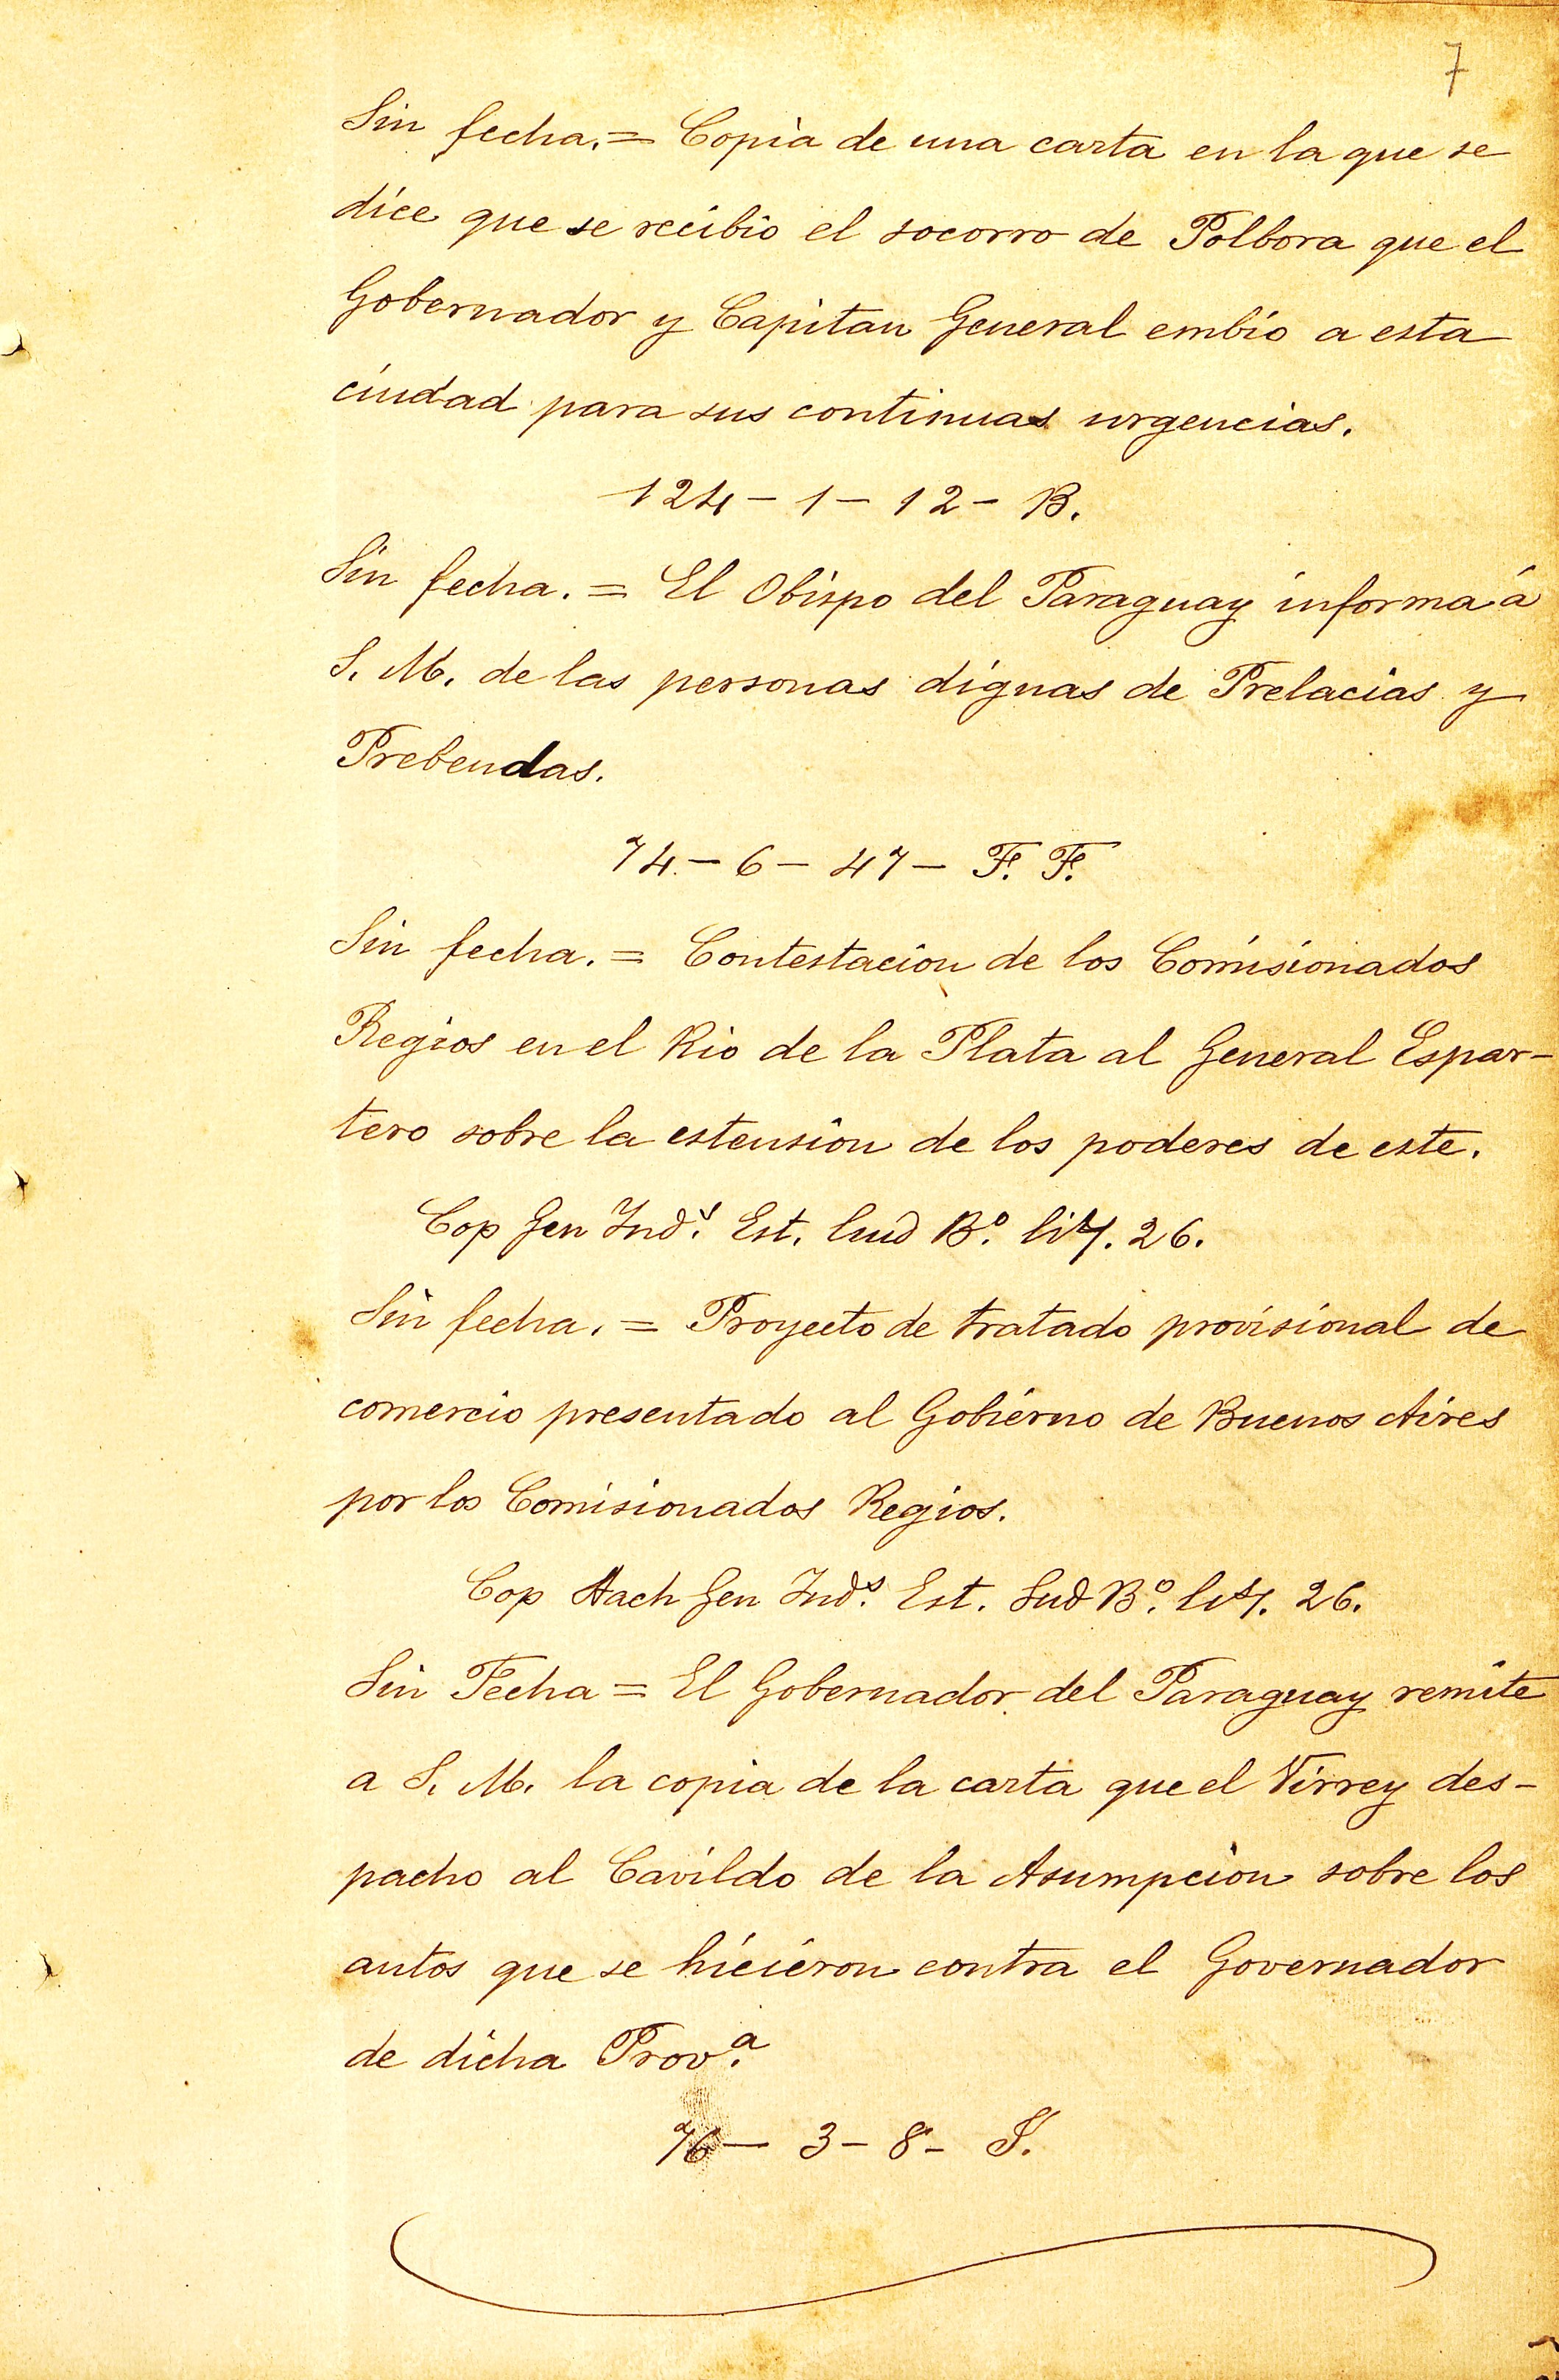 7
Sin fecha.= Copia de una carta en la que se
dice que se recibio el socorro de Polbora que el
Gobernador y Capitan General embio a esta
ciudad para sus continuas urgencias.
124 - 1 - 12 - B.
Sin fecha. = El Obispo del Paraguay informa á
S. M. de las personas dignas de Prelacias y
Prebendas.
74 - 6 - 47 - F. F.
Sin fecha. = Contestacion de los Comisionados
Regios en el Rio de la Plata al General Espar-
tero sobre la estension de los poderes de este.
Cop Gen Ind.s Est. Bº. 26.
Sin fecha. = Proyecto de tratado provisional de
comercio presentado al Gobierno de Buenos Aires
por los Comisionados Regios.
Cop Gen Ind.s Est. Sud Bº. 26.
Sin Fecha = El Gobernador del Paraguay remite
a S. M. la copia de la carta que el Virrey des-
pacho al Cavildo de la Asumpcion sobre los
autos que se hicieron contra el Governador
de dicha Prov.a
76 - 3 - 8 -